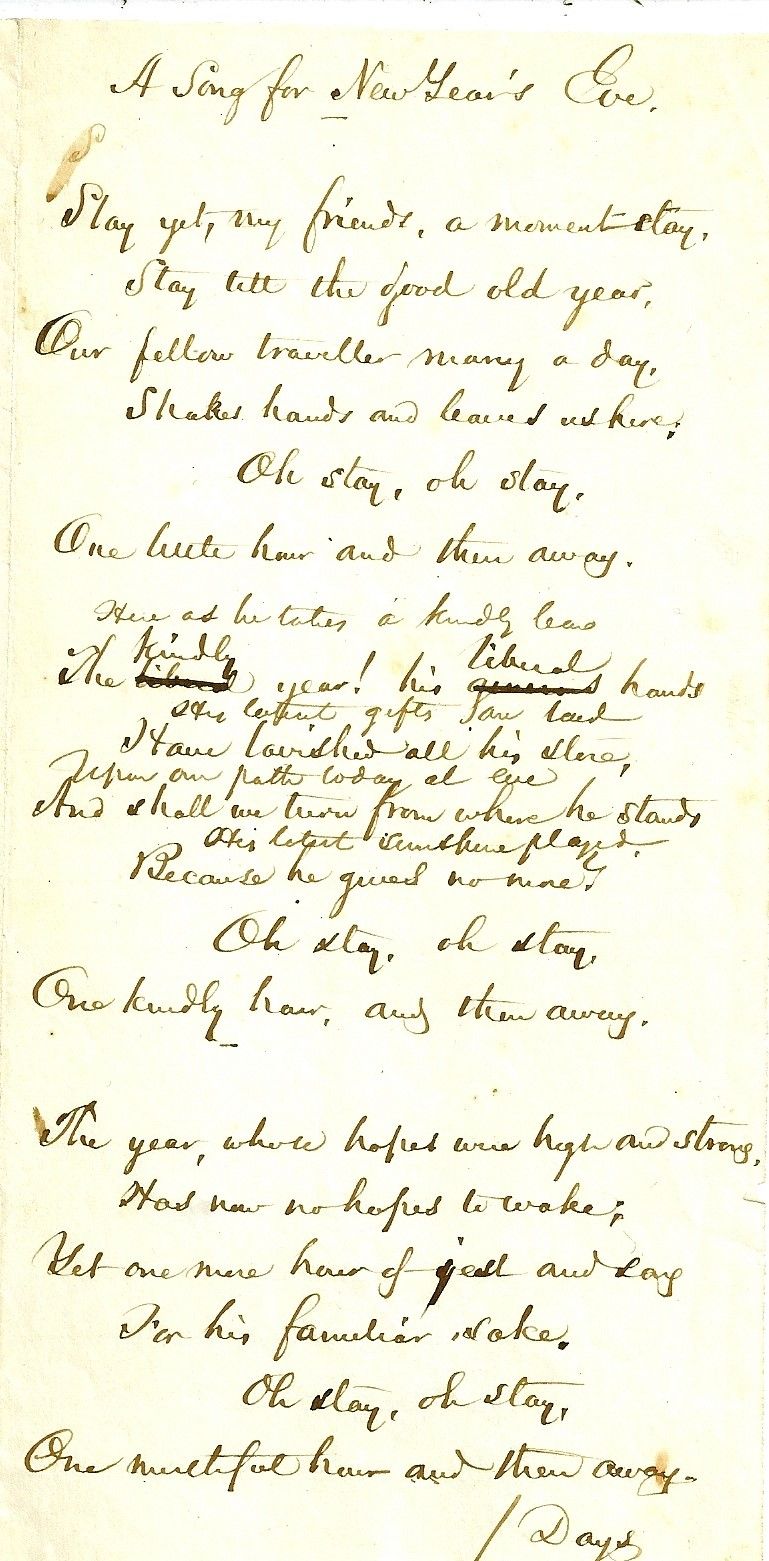 A Song for New Year's Eve.
Stay yet, my friends, a moment stay,
Stay till the good old year,
Our fellow traveller many a day,
Shakes hands and leaves us here;
Oh stay, oh stay,
One little hour and then away.
Here as he takes a kindly leave
kindly liberal
The liberal year! his generous hands
His latest gifts are laid
Have lavished all his store,
Upon our path today at eve
And shall we turn from where he stands
His latest sunshine played.
Because he gives no more?
Oh stay, oh stay,
One kindly hour, and then away.
The year, whose hopes were high and strong,
Has now no hopes to wake;
Yet one more hour of jest and song
For his familiar sake.
Oh stay, oh stay,
One mirthful hour and then away.
/ Days